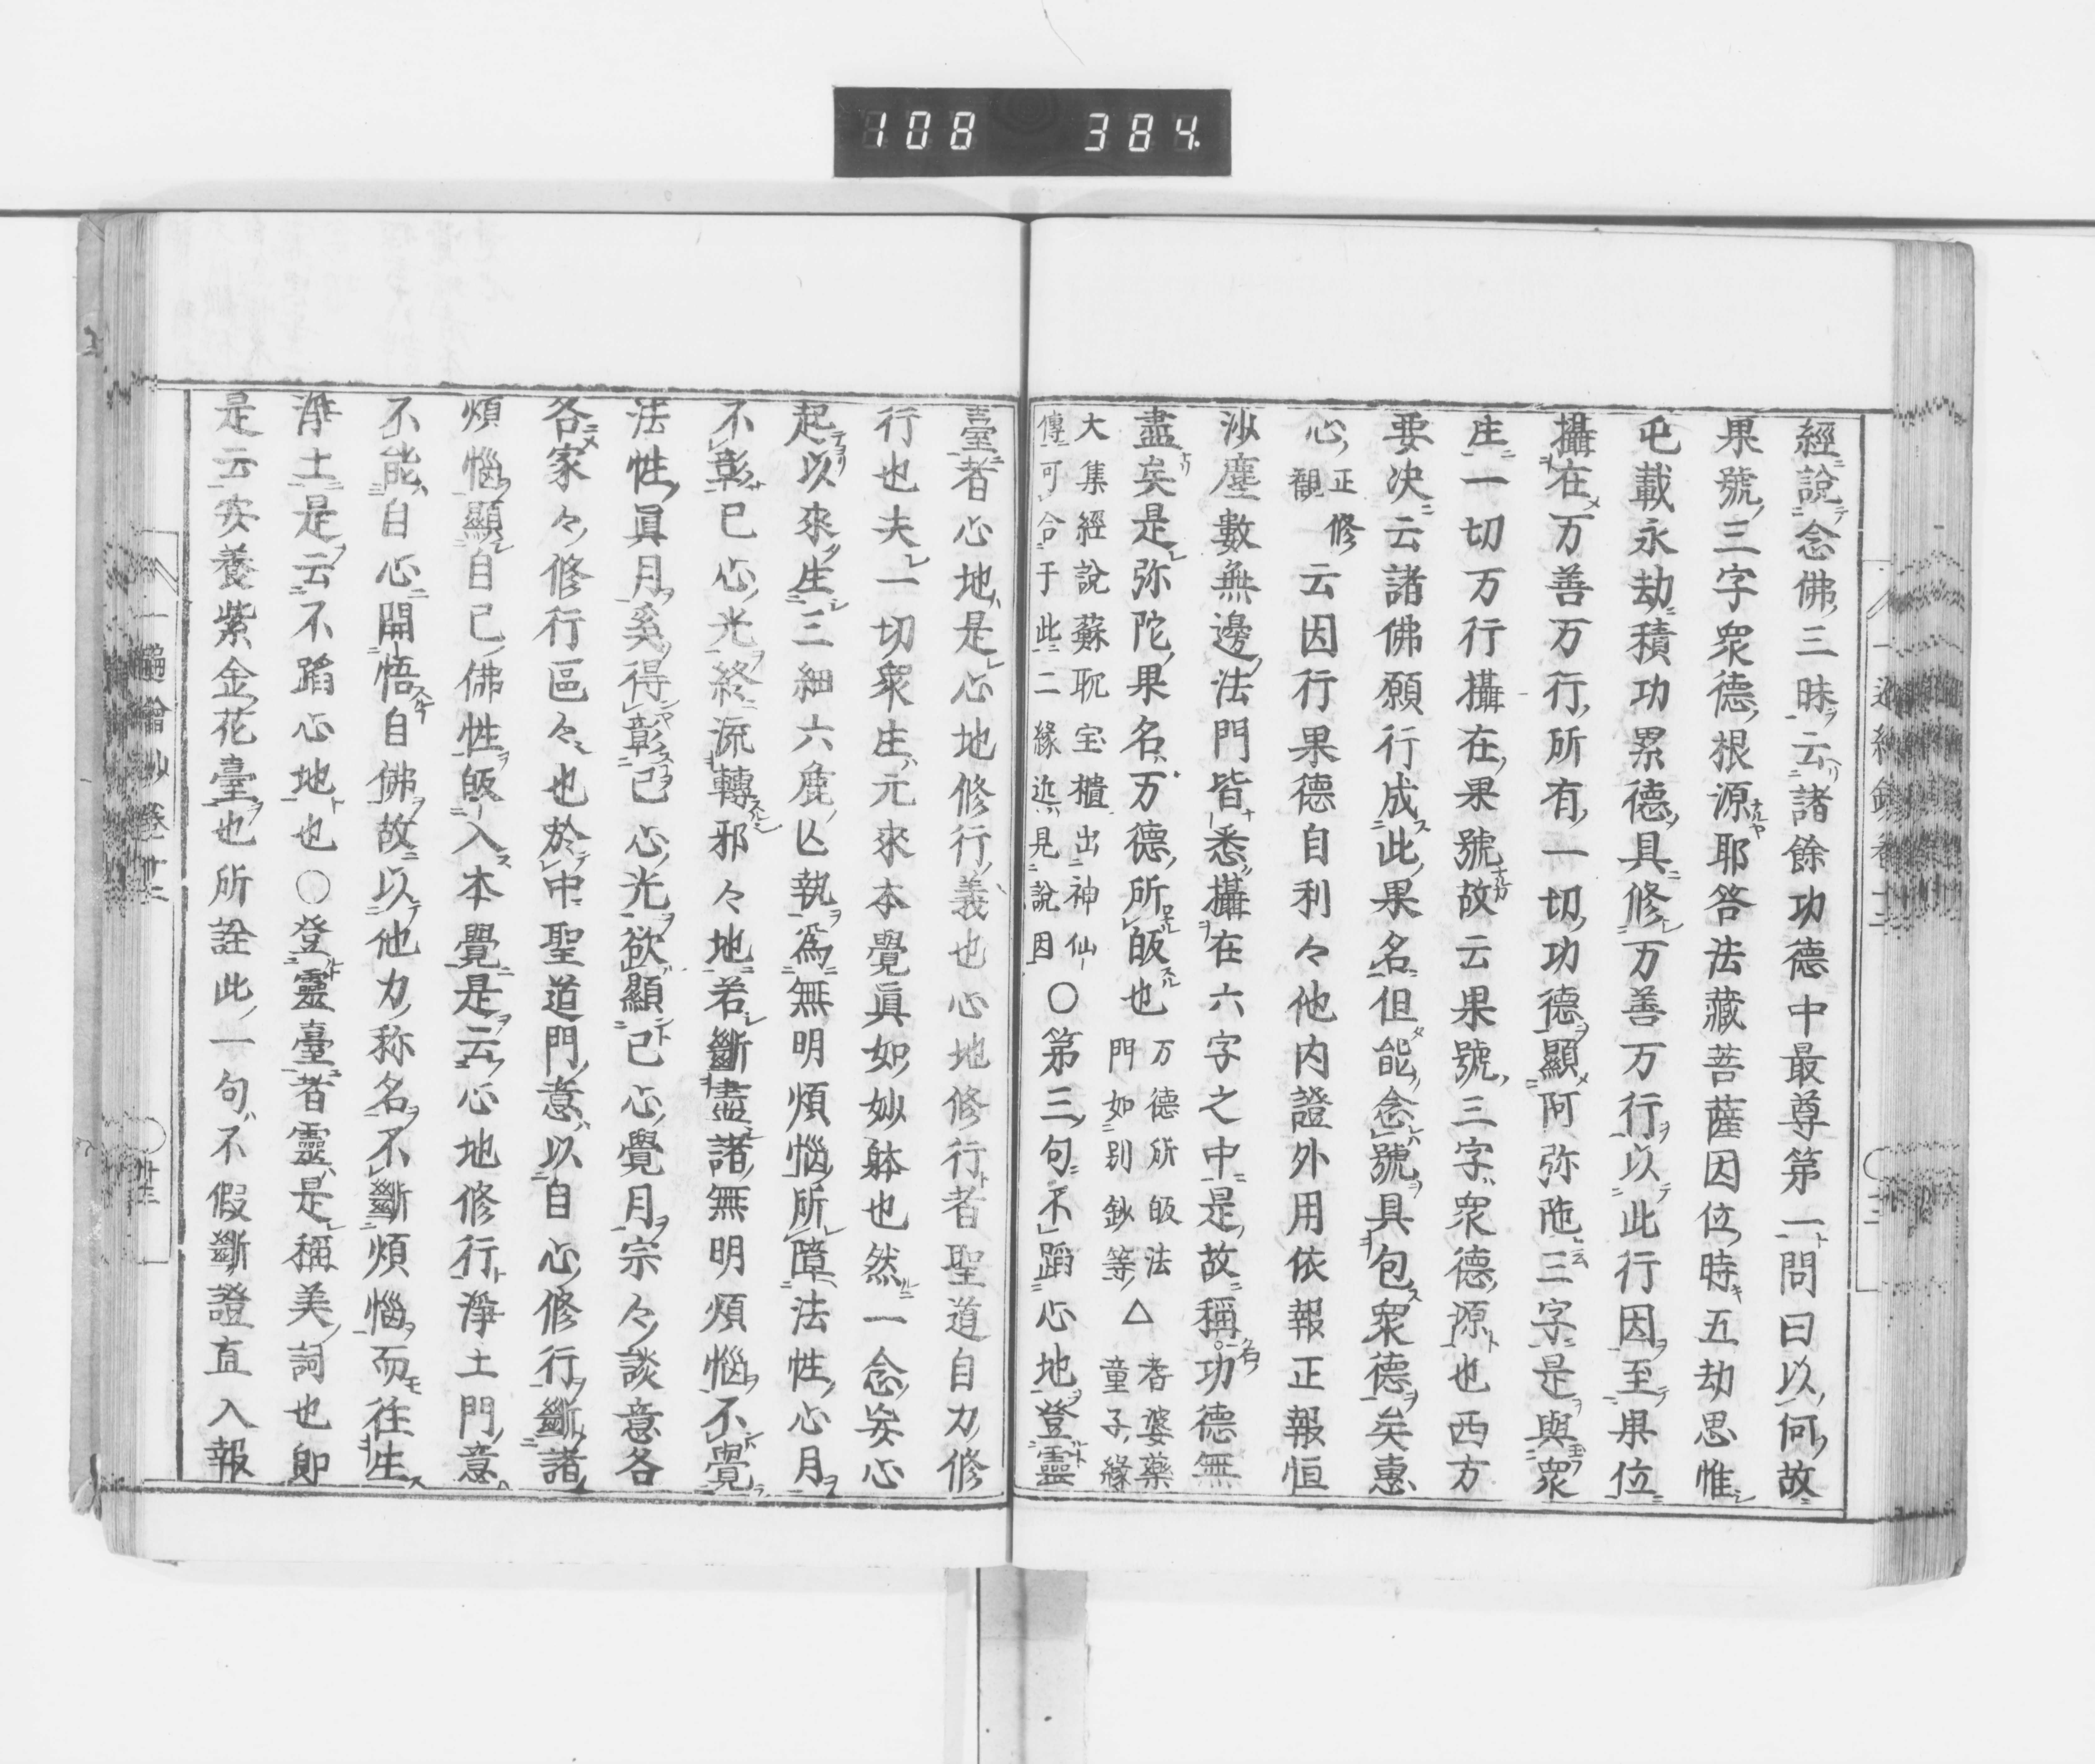 108 384
經說念佛三昧云諸餘功德中最尊第一問曰以何故
果號三字衆德根源耶答法藏菩薩因位時五劫思惟
屯載永劫積功累德具修万善万行以此行因至果位
攝在万善万行所有一切功德顯阿弥陁三字是與衆
生一切万行攝在果號故云果號三字衆德源也西方
要决云諸佛願行成此果名但能念號具包衆德矣惠
心正修觀云因行果德自利々他内證外用依報正報恒
沙塵數無邊法門皆悉攝在六字之中是故稱功德無
盡矣是弥陀果名万德所皈也万德所皈法門如別鈔等△耆婆藥童子緣
大集經說蘇耽宝櫃出神仙傳可合于此二緣迄見說因〇第三句不蹈心地登靈
臺者心地是心地修行義也心地修行者聖道自力修
行也夫一切衆生元來本覺眞如妙躰也然一念妄心
起以來生三細六麁亾執爲無明煩惱所障法性心月
不彰已心光終流轉邪々地若斷盡諸無明煩惱不覺
法性眞月奚得彰己心光欲顯己心覺月宗々談意各
各家々修行區々也於中聖道門意以自心修行斷諸
煩惱顯自己佛性皈入本覺是云心地修行淨土門意
不能自心開悟自佛故以他力称名不斷煩惱而徃生
淨土是云不蹈心地也〇登靈臺者靈是稱美詞也即
是云安養紫金花臺也所詮此一句不假斷證直入報
一遍繪鈔卷十二